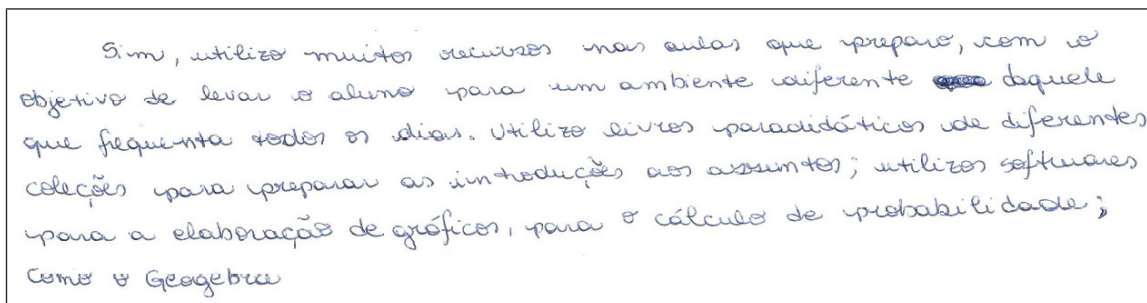 Sim, utilizo muitos recursos nas aulas que preparo, com o
objetivo de levar o aluno para um ambiente diferente daquele
que frequenta todos os dias. Utilizo livros paradidáticos de diferentes
coleções para preparar as introduções aos assuntos; utilizos softwares
para a elaboração de gráficos, para o cálculo de probabilidade;
como o Geogebra